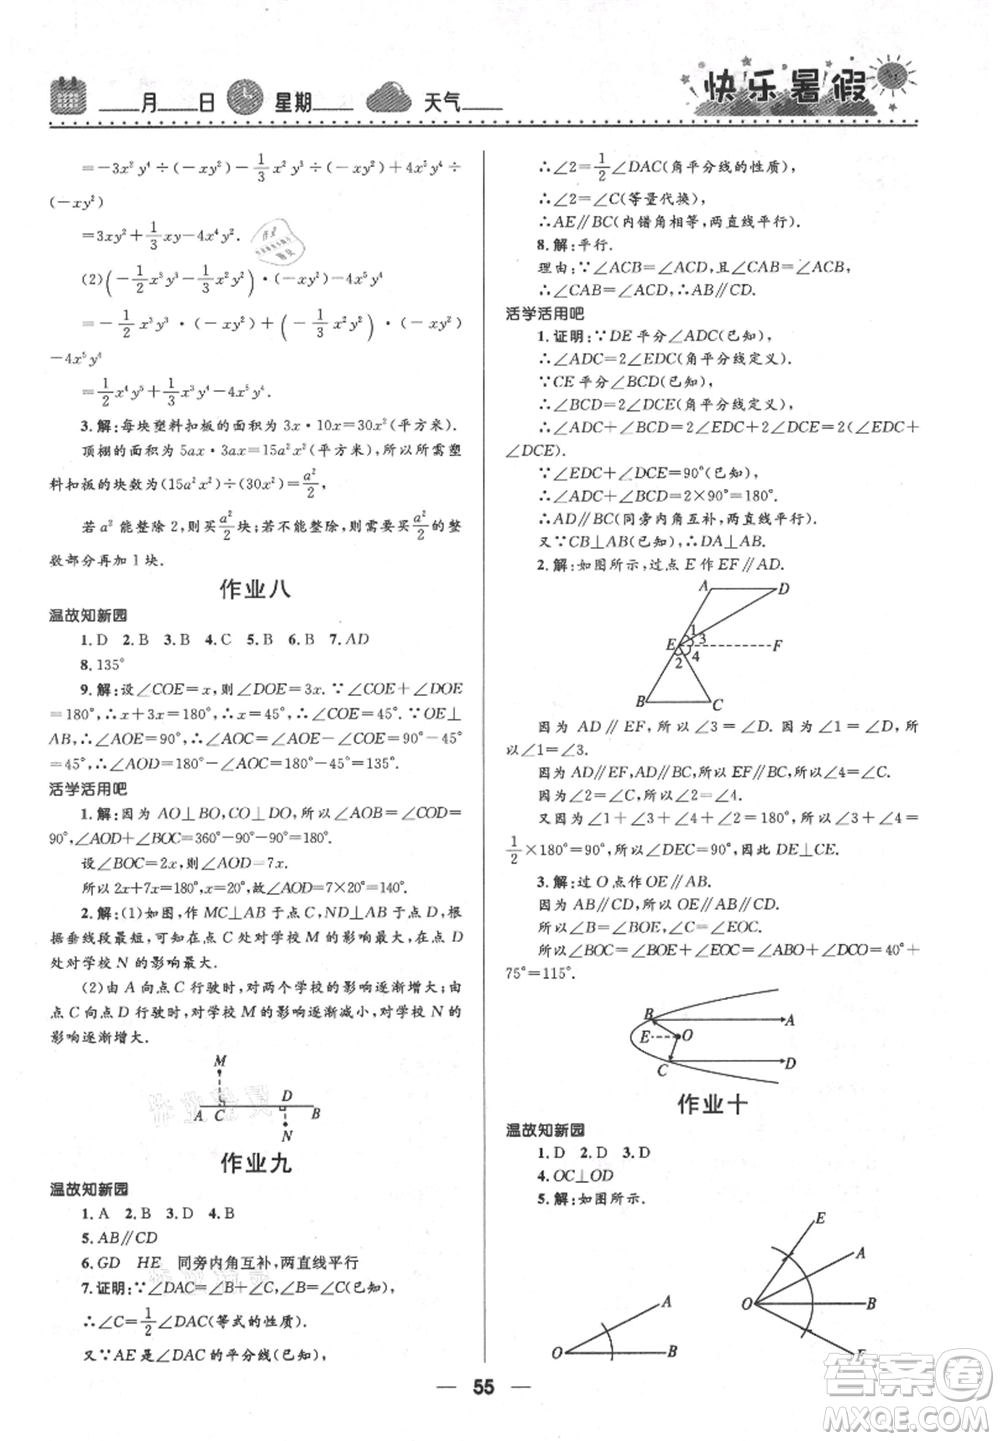 ____月____日 星期____ 天气____ 快乐暑假
=-3x²y⁴÷(-xy²)-1/3x²y³÷(-xy²)+4x³y⁴÷
(-xy²)
=3xy²+1/3xy-4x²y².
(2)(-1/2x³y³-1/3x²y²)·(-xy²)-4x⁵y⁴
=-1/2x³y³·(-xy²)+(-1/3x²y²)·(-xy²)
-4x⁵y⁴
=1/2x⁴y⁵+1/3x³y⁴-4x⁵y⁴.
3.解:每块塑料扣板的面积为3x·10x=30x²(平方米).
顶棚的面积为5ax·3ax=15a²x²(平方米),所以需要塑
料扣板的块数为(15a²x²)÷(30x²)=a²/2,
若a²能整除2,则买a²/2块;若不能整除,则需要买a²/2的整
数部分再加1块.
作业八
温故知新园
1.D 2.B 3.B 4.C 5.B 6.B 7.AD
8.135°
9.解:设∠COE=x,则∠DOE=3x.∵∠COE+∠DOE
=180°,∴x+3x=180°,∴x=45°,∴∠COE=45°.∵OE⊥
AB,∴∠AOE=90°,∴∠AOC=∠AOE-∠COE=90°-
45°=45°,∴∠AOD=180°-∠AOC=180°-45°=135°.
活学活用吧
1.解:因为AO⊥BO,CO⊥DO,所以∠AOB=∠COD=
90°,∠AOD+∠BOC=360°-90°-90°=180°.
设∠BOC=2x,则∠AOD=7x.
所以2x+7x=180°,x=20°,故∠AOD=7×20°=140°.
2.解:(1)如图,作MC⊥AB于点C,ND⊥AB于点D,根
据垂线段最短,可知在点C处对学校M的影响最大,在点D
处对学校N的影响最大.
(2)由A向点C行驶时,对两个学校的影响逐渐增大;由
点C向点D行驶时,对学校M的影响逐渐减小,对学校N的
影响逐渐增大.
M
A C D B
N
作业九
温故知新园
1.A 2.B 3.D 4.B
5.AB∥CD
6.GD HE 同旁内角互补,两直线平行
7.证明:∵∠DAC=∠B+∠C,∠B=∠C(已知),
∴∠C=1/2∠DAC(等式的性质).
又∵AE是∠DAC的平分线(已知),
∴∠2=1/2∠DAC(角平分线的性质),
∴∠2=∠C(等量代换),
∴AE∥BC(内错角相等,两直线平行).
8.解:平行.
理由:∵∠ACB=∠ACD,且∠CAB=∠ACB,
∴∠CAB=∠ACD,∴AB∥CD.
活学活用吧
1.证明:∵DE平分∠ADC(已知),
∴∠ADC=2∠EDC(角平分线定义).
∵CE平分∠BCD(已知),
∴∠BCD=2∠DCE(角平分线定义),
∴∠ADC+∠BCD=2∠EDC+2∠DCE=2(∠EDC+
∠DCE).
∵∠EDC+∠DCE=90°(已知),
∴∠ADC+∠BCD=2×90°=180°,
∴DA∥CB(同旁内角互补,两直线平行).
又∵CB⊥AB(已知),∴DA⊥AB.
2.解:如图所示,过点E作EF∥AD.
A D
1
E 3 F
2 4
B C
因为AD∥EF,所以∠3=∠D.因为∠1=∠D,所
以∠1=∠3.
因为AD∥EF,AD∥BC,所以EF∥BC,
所以∠4=∠C.
因为∠2=∠C,所以∠2=∠4.
又因为∠1+∠3+∠2+∠4=180°,所以∠3+∠4=
1/2×180°=90°,所以∠DEC=90°,因此DE⊥CE.
3.解:过O点作OE∥AB.
因为AB∥CD,所以OE∥AB∥CD,
所以∠B=∠BOE,∠C=∠EOC.
所以∠BOC=∠BOE+∠EOC=∠ABO+∠DCO=40°+
75°=115°.
B A
E O
C D
作业十
温故知新园
1.D 2.D 3.D
4.OC⊥OD
5.解:如图所示.
E
A
A
O B
O B
F
55
答案圈
MXQE.COM